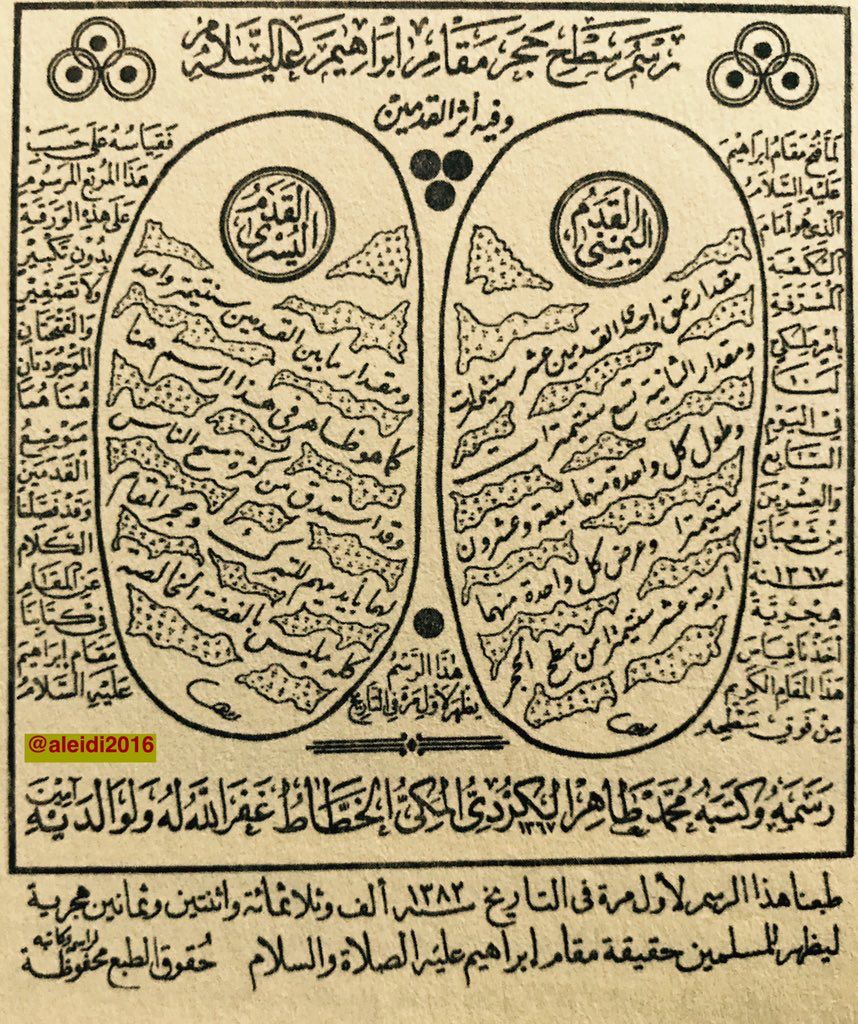 رسم سطح حجر مقام ابراهيم عليه السلام
وفيه أثر القدمين
لما فتح مقام ابراهيم
عليه السلام
الذي هو أمام
الكعبة
المشرفة
بأمر ملكي
لنا
في اليوم
السابع
والعشرين
من شعبان
سنة ١٣٦٧
هجرية
أخذنا قياس
هذا المقام الكريم
من فوق سطحه
فقياسه على حسب
هذا المربع المرسوم
على هذه الورقة
بدون تكبير
ولا تصغير
والفتحتان
الموجودتان
هنا هما
موضع
القدمين
وقد فصلنا
الكلام
عن المقام
في كتابنا
مقام إبراهيم
عليه السلام
القدم
اليمنى
مقدار عمق إحدى القدمين عشر سنتيمترات
ومقدار الثانية تسع سنتيمترات
وطول كل واحدة منهما سبعة وعشرون
سنتيمترا وعرض كل واحدة منهما
أربعة عشر سنتيمترا من سطح الحجر
القدم
اليسرى
ومقدار ما بين القدمين سنتيمتر واحد
كما هو ظاهر في هذا الرسم هنا
وقد استدق من كثرة مسح الناس
لهما بأيديهم للتبرك وحجر المقام
كله ملبس بالفضة الخالصة
هذا الرسم
يظهر لأول مرة في التاريخ
رسمه وكتبه محمد طاهر الكردي المكي الخطاط غفر الله له ولوالديه آمين
١٣٦٧
طبعنا هذا الرسم لأول مرة في التاريخ سنة ١٣٨٢ ألف وثلاثمائة واثنتين وثمانين هجرية
ليظهر للمسلمين حقيقة مقام إبراهيم عليه الصلاة والسلام حقوق الطبع محفوظة
@aleidi2016